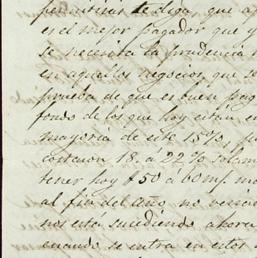 permitirás te diga, que a
es el mejor pagador que y
se necesita la prudencia
en aquellos negocios que se
prueba de que es buen pag
fondo de los que hoy están en
mayoria de este 15%, pu
cortaron 18. á 22% solam
tener hoy $50 á 60 m/
al fin del año, no venci
nos está sucediendo ahora
cuando se entra en estos